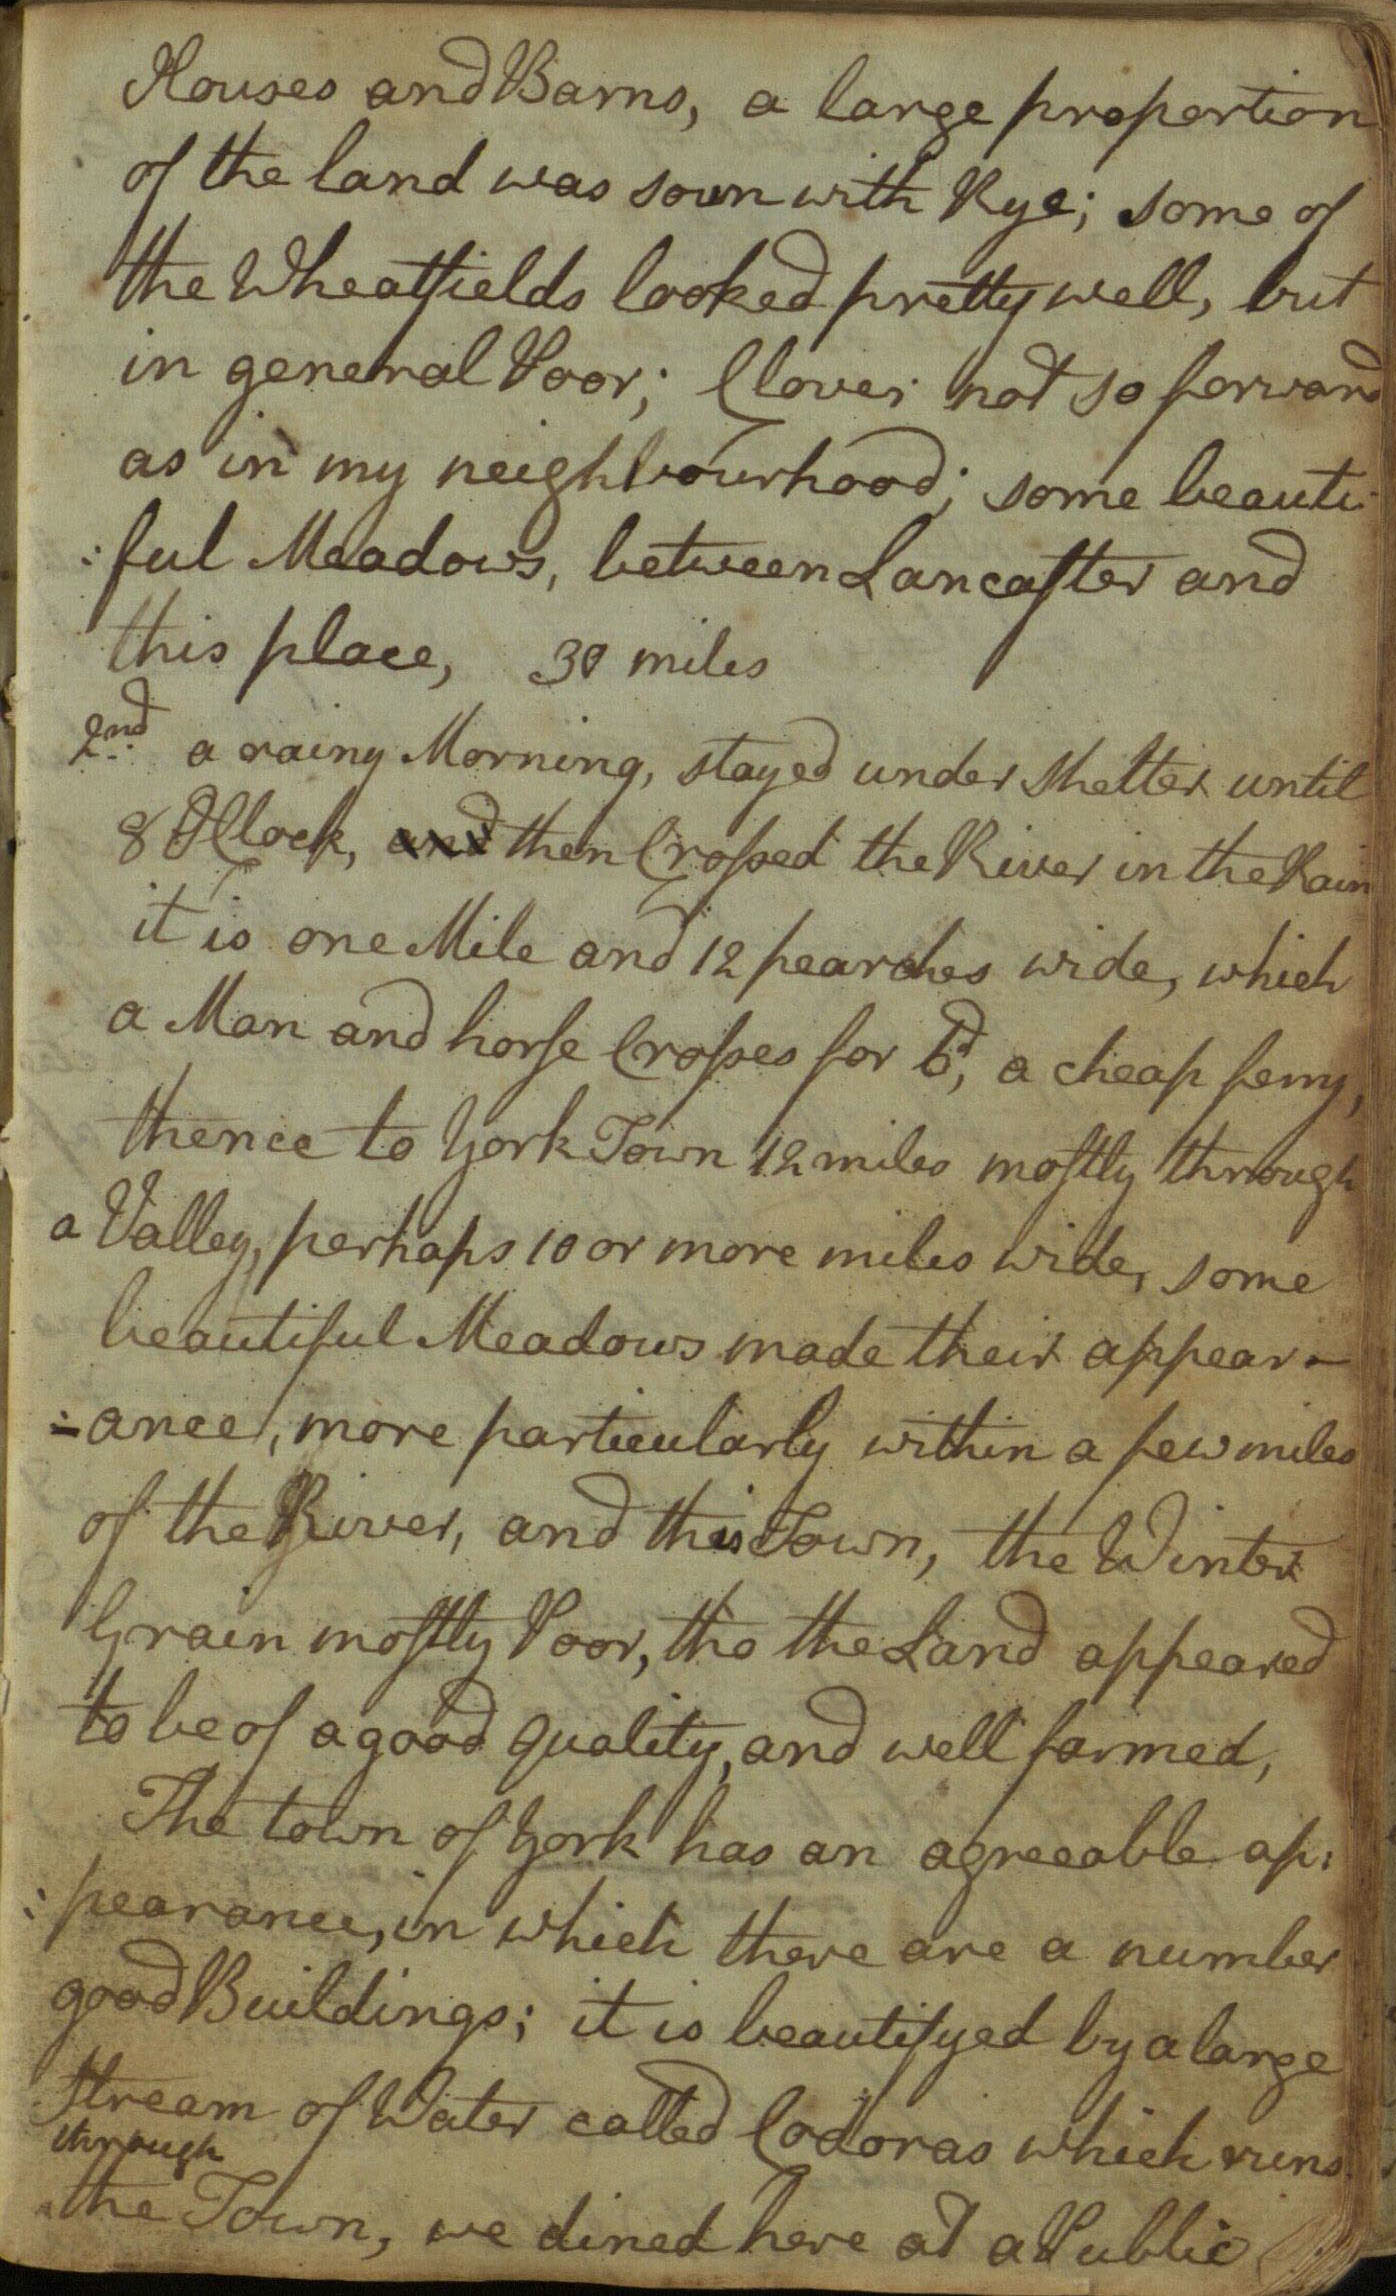 Houses and Barns, a large proportion
of the land was sown with Rye; some of
the Wheatfields looked pretty well, but
in general Poor; Clover not so forward
as in my neighbourhood; some beauti:
:ful Meadows, between Lancaster and
this place, 30 miles
2nd. a rainy Morning, stayed under shelter until
8 OClock, and then Crossed the River in the Rain
it is one Mile and 12 pearches wide, which
a Man and horse Crosses for 6d, a cheap ferry,
thence to York Town 12 miles mostly through
a Valley, perhaps 10 or more miles wide, some
beautiful Meadows made their appear-
-ance, more particularly within a few miles
of the River, and this Town, the Winter
Grain mostly Poor, tho the Land appeared
to be of a good quality, and well farmed,
The town of York has an agreeable ap:
:pearance, in which there are a number
good Buildings; it is beautifyed by a large
stream of Water called Codoras which runs
through
the Town, we dined here at a Public